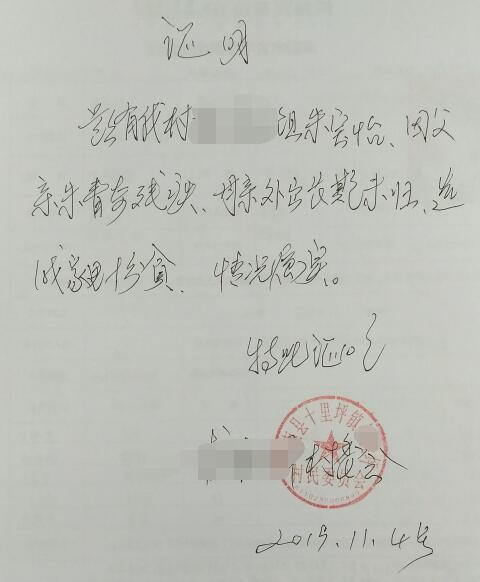 证明
兹有我村 组朱宝怡、因父
亲朱青春残疾、母亲外出长期未归、造
成家里十分贫、情况属实。
特此证明
村委会
县十里坪镇
村民委员会
2019.11.4号